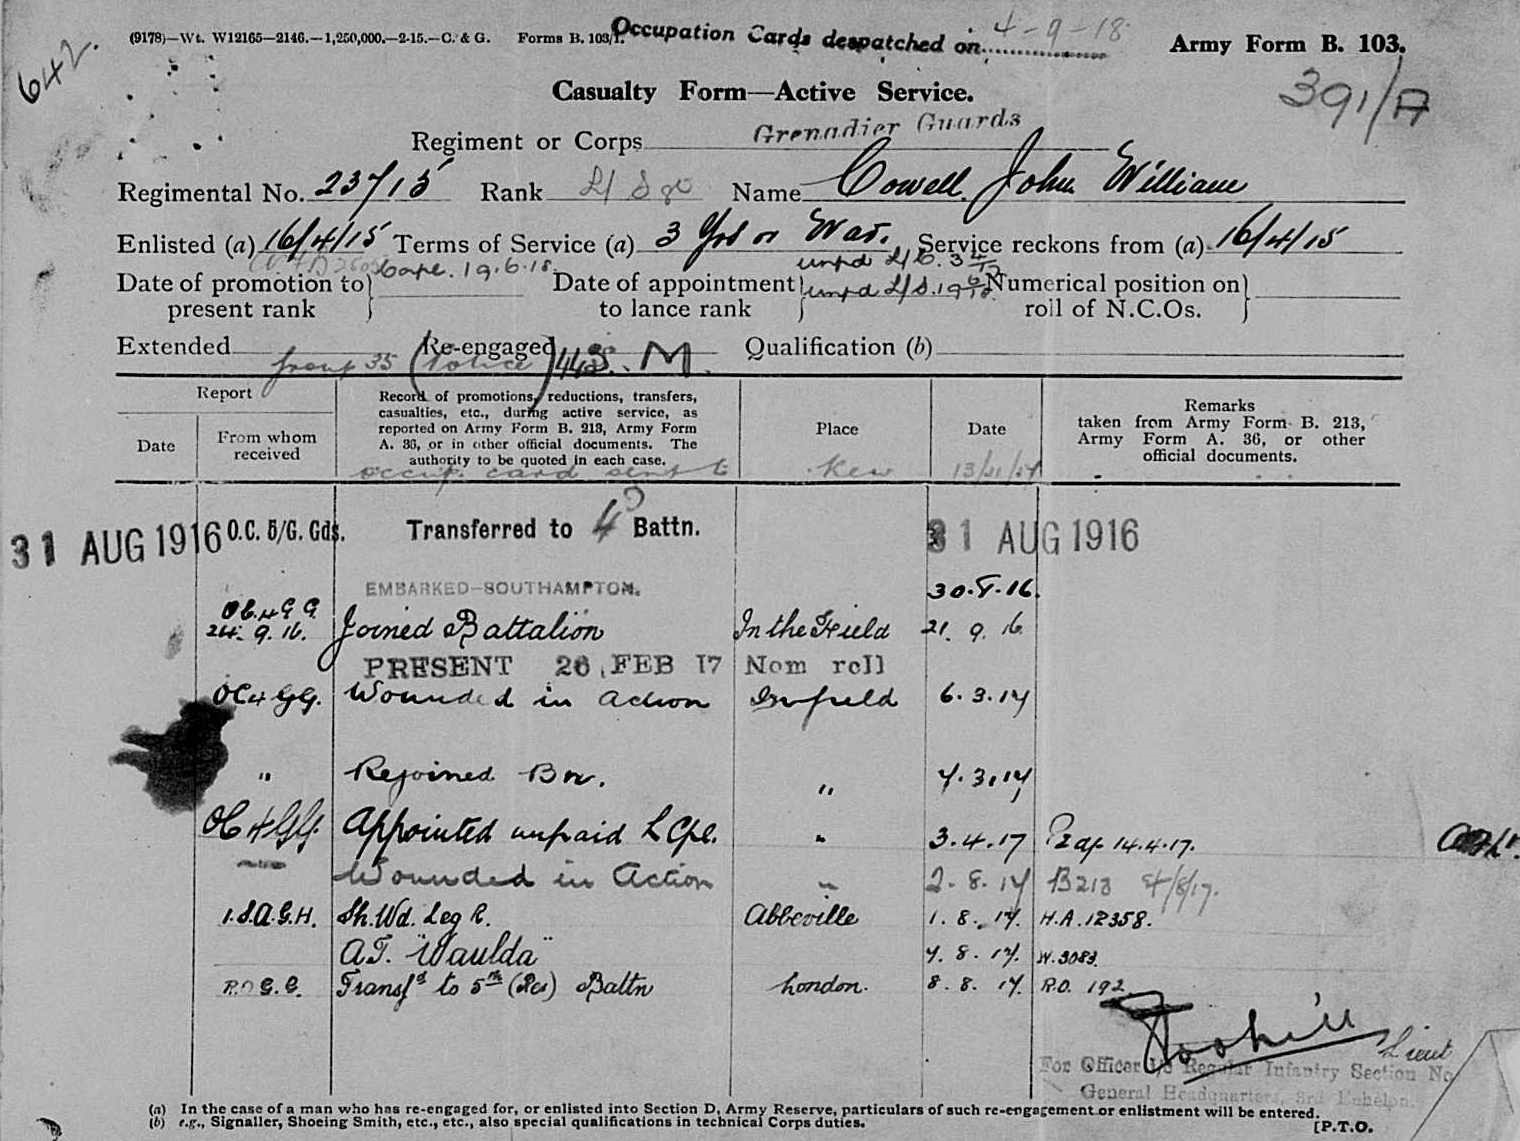 642.
(9178)—Wt. W12165—2146.—1,250,000.—2-15.—C. & G. Forms B. 103/1. Occupation Cards despatched on 4-9-18 Army Form B. 103.
391/A
Casualty Form—Active Service.
Regiment or Corps Grenadier Guards
Regimental No. 23715 Rank L/Sgt Name Cowell. John William
Enlisted (a) 16/4/15 Terms of Service (a) 3 Yrs or War. Service reckons from (a) 16/4/15
unpd L/C. 3 4/17
Date of promotion to present rank Corpl. 19.6.18. Date of appointment to lance rank unpd L/S. 19 6/18 Numerical position on roll of N.C.Os.
Extended Re-engaged Qualification (b)
Group 35 (Police) M.
Report
Date
From whom received
Record of promotions, reductions, transfers, casualties, etc., during active service, as reported on Army Form B. 213, Army Form A. 36, or in other official documents. The authority to be quoted in each case.
Place
Date
Remarks taken from Army Form B. 213, Army Form A. 36, or other official documents.
occup. card sent to Kew
31 AUG 1916 O.C. 5/G. Gds. Transferred to 4 Battn. 31 AUG 1916
EMBARKED—SOUTHAMPTON. 30.8.16.
OC. 4 G G
24. 9. 16. Joined Battalion In the Field 21. 9. 16
PRESENT 26 FEB 17 Nom roll
OC 4 GG. Wounded in action Infield 6.3.17
" Rejoined Bn. " 7.3.17
OC 4 GG. Appointed unpaid L Cpl. " 3.4.17 14.4.17.
Wounded in Action " 2.8.17 B213 4/8/17.
1.S.A.G.H. Sh. Wd. Leg R. Abbeville 1.8.17. H.A. 12358.
A.T. "Waulda" 7.8.17. W.3083.
R.O G.G. Transfd to 5th (Res) Battn London. 8.8.17. R.O. 192
Lieut
For Officer i/c Regular Infantry Section No
General Headquarters, 3rd Echelon.
(a) In the case of a man who has re-engaged for, or enlisted into Section D, Army Reserve, particulars of such re-engagement or enlistment will be entered.
(b) e.g., Signaller, Shoeing Smith, etc., etc., also special qualifications in technical Corps duties.
[P.T.O.